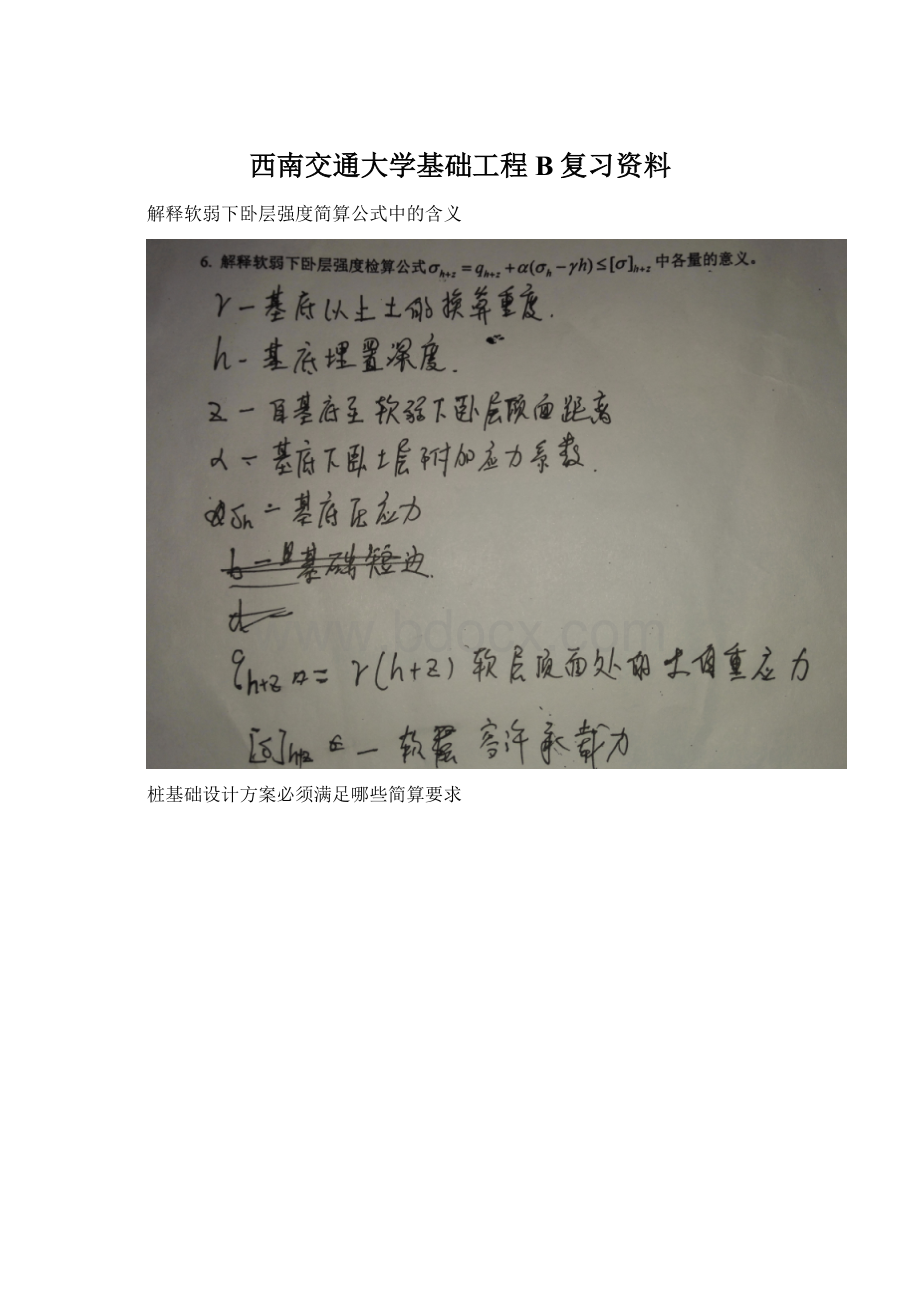 西南交通大学基础工程 B 复习资料
解释软弱下卧层强度简算公式中的含义
6. 解释软弱下卧层强度检算公式σh+z = qh+z + α(σh − γh) ≤ [σ]h+z 中各量的意义。
γ — 基底以上土的换算重度.
h - 基底埋置深度.
z — 自基底至软弱下卧层顶面距离
α — 基底下卧土层附加应力系数.
σh — 基底压应力
b — 基础短边.
d
www.bdocx.com
qh+z = γ(h+z) 软层顶面处的土自重应力
[σ]h+z — 软层容许承载力
桩基础设计方案必须满足哪些简算要求